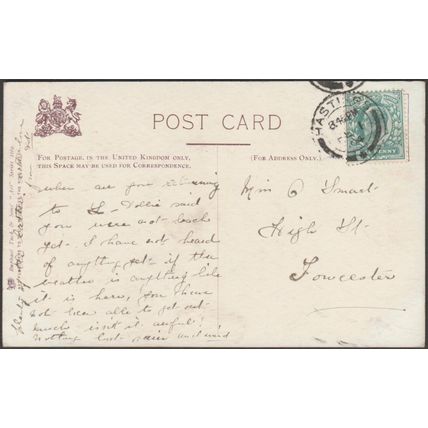 POST CARD
FOR POSTAGE IN THE UNITED KINGDOM ONLY,
THIS SPACE MAY BE USED FOR CORRESPONDENCE.
(FOR ADDRESS ONLY.)
HASTINGS
PENNY
when are you returning
to Dollie said
you were not back
yet. I have not heard
of anything yet if the
weather is anything like
it is here, you have
not been able to get out
much isn't it awful!
nothing but rain and wind
Miss Smart
High St.
Towcester